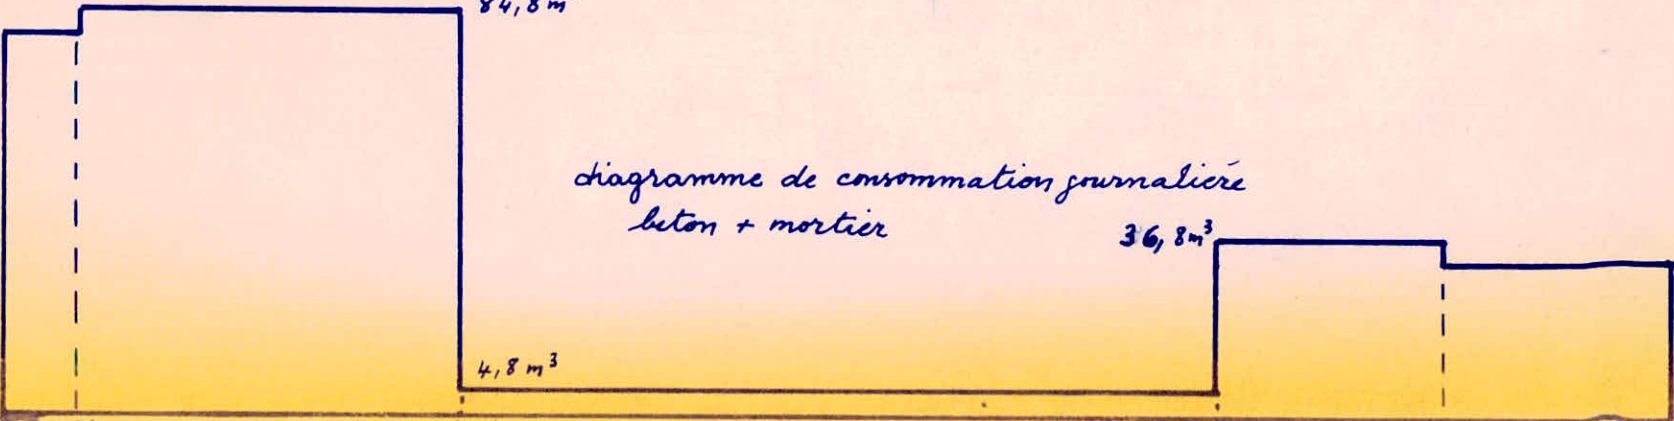 84,8 m
diagramme de consommation journalière
beton + mortier
36,8 m³
4,8 m³